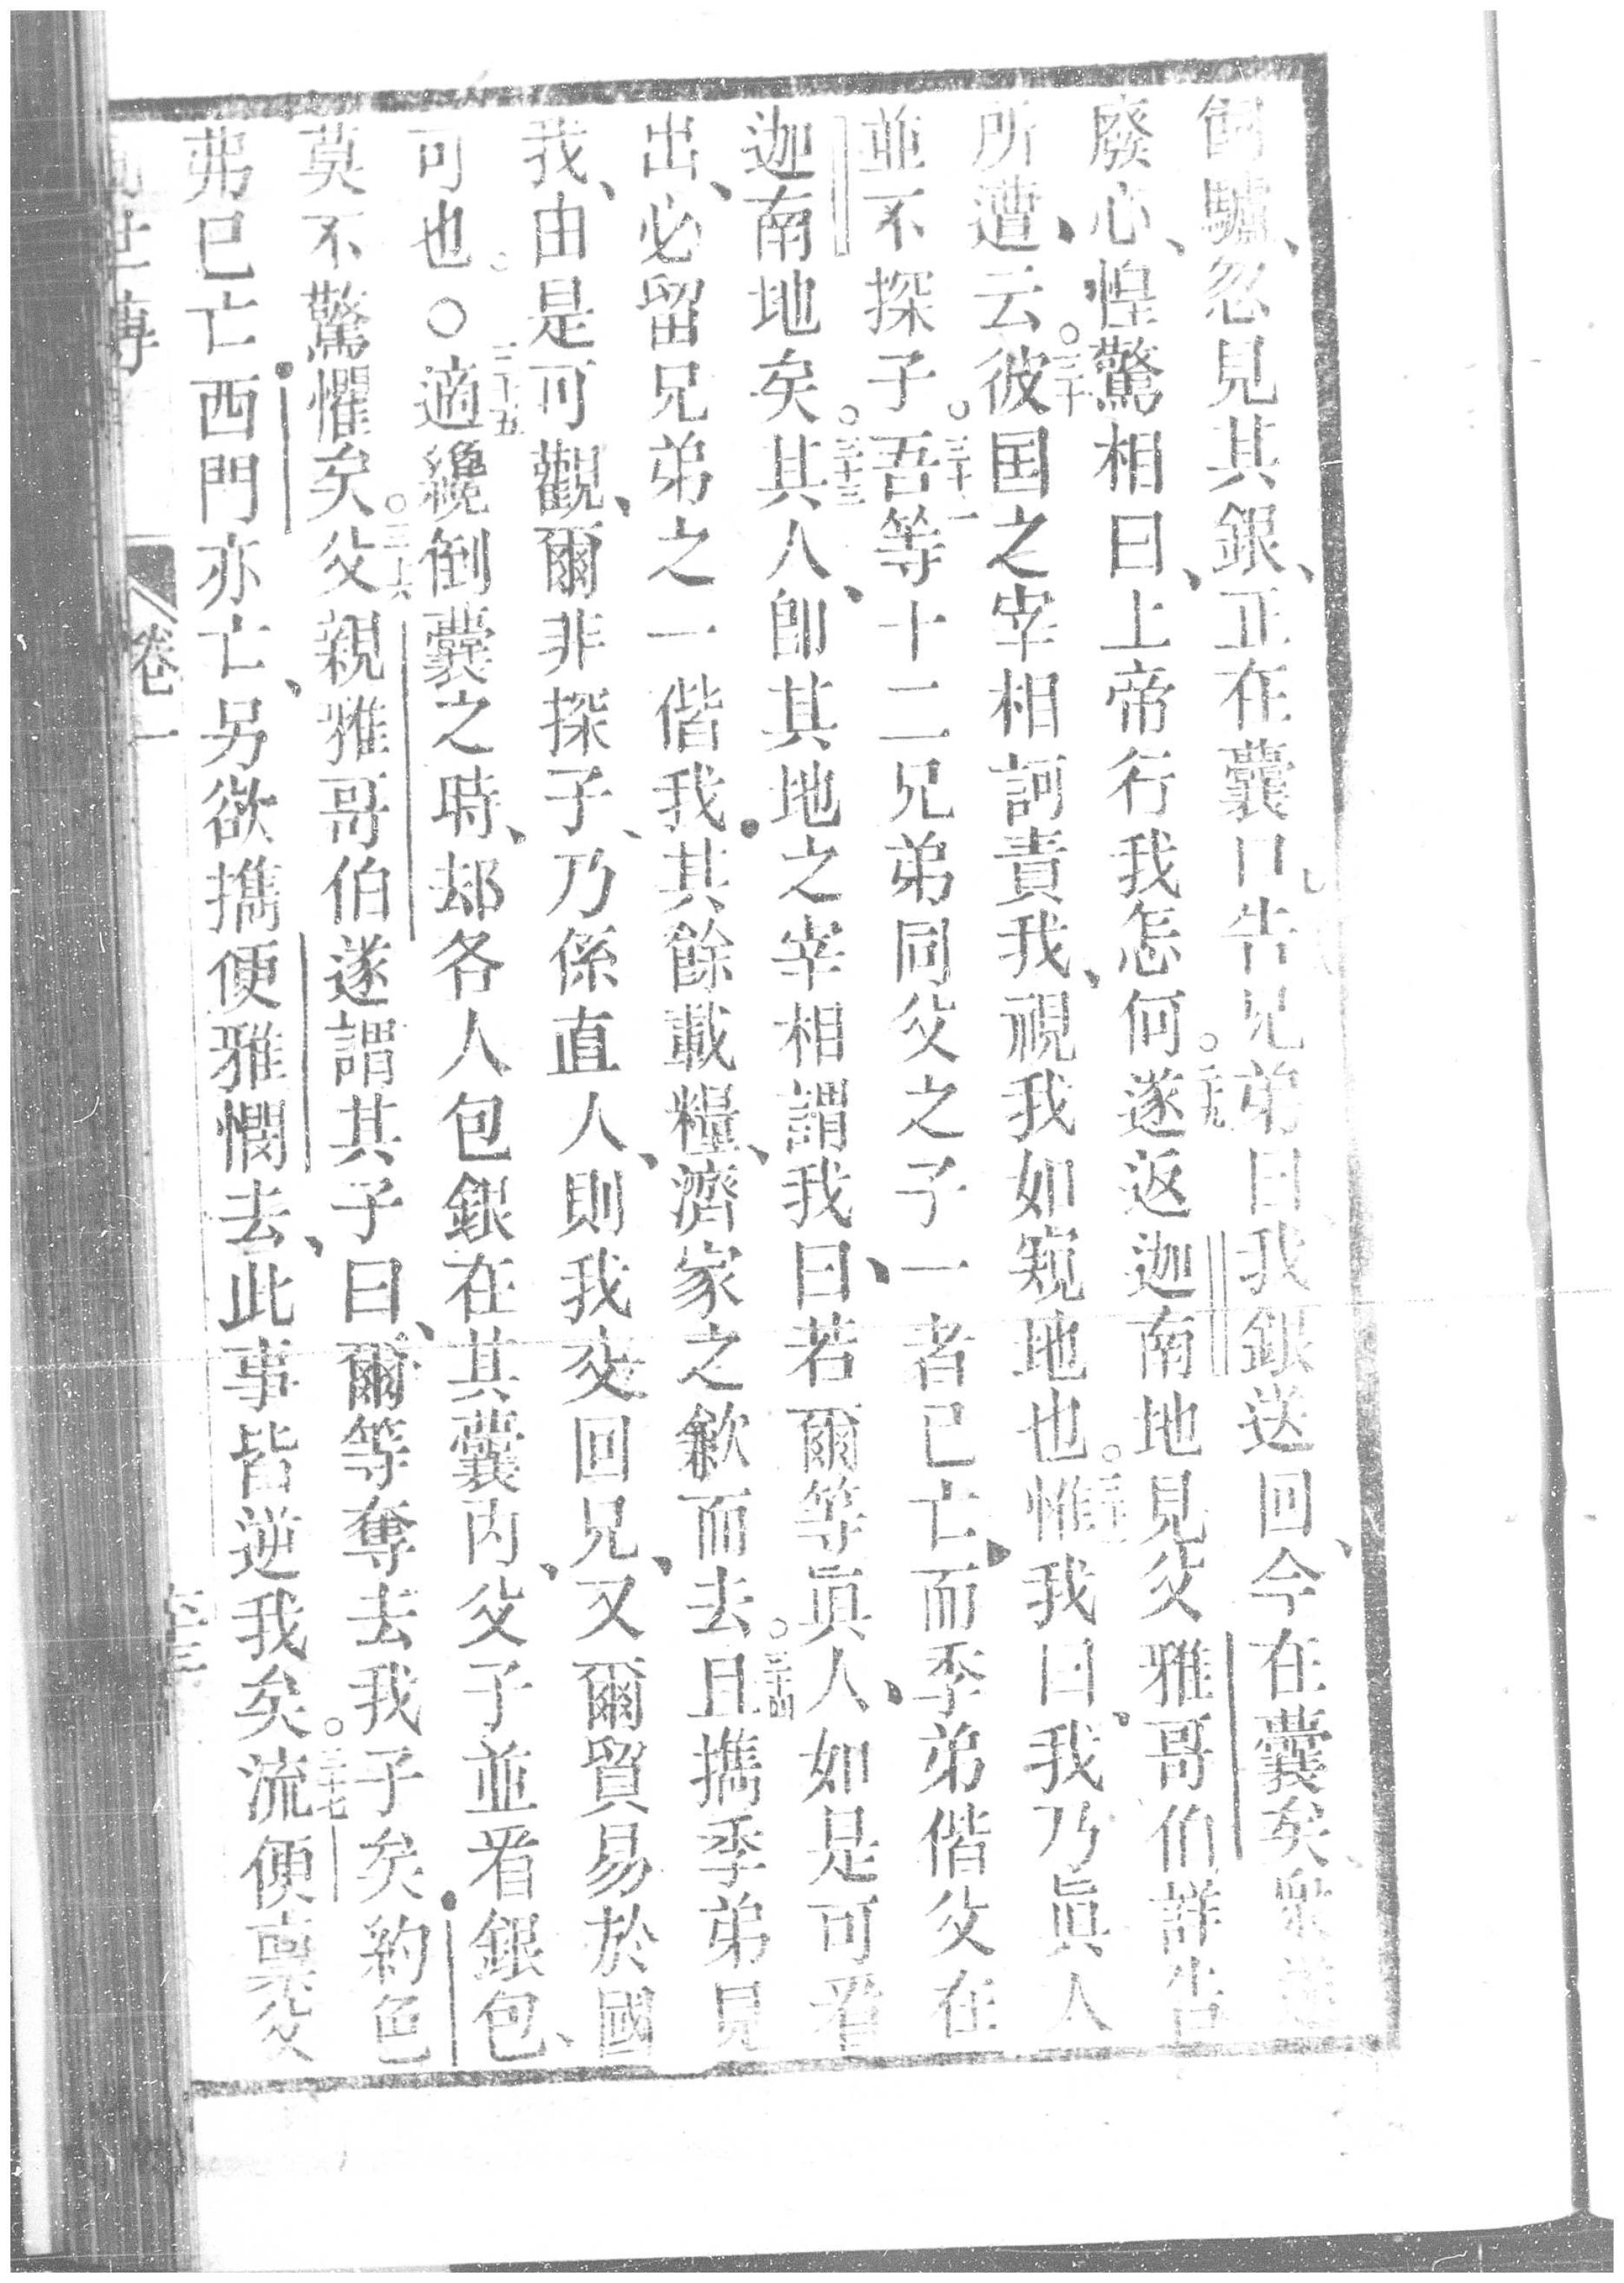 飼驢、忽見其銀、正在囊口告兄弟曰我銀送回、今在囊矣、衆遂
廢心、惶驚相曰、上帝行我怎何。二十九遂返迦南地見父雅哥伯詳告
所遭、云。三十彼国之宰相訶責我、視我如窺地也。三十一惟我曰、我乃眞人
並不探子。三十二吾等十二兄弟同父之子一者已亡、而季弟偕父在
迦南地矣。三十三其人、卽其地之宰相謂我曰、若爾等眞人、如是可看
出、必留兄弟之一偕我、其餘載糧、濟家之歉而去。三十四且攜季弟見
我、由是可觀、爾非探子、乃係直人、則我交回兄、又爾貿易於國
可也。○三十五適纔倒囊之時、却各人包銀在其囊內、父子並看銀包、
莫不驚懼矣。三十六父親雅哥伯遂謂其子曰、爾等奪去我子矣、約色
弗已亡、西門亦亡、另欲攜便雅憫去、此事皆逆我矣。三十七流便稟父
卷一